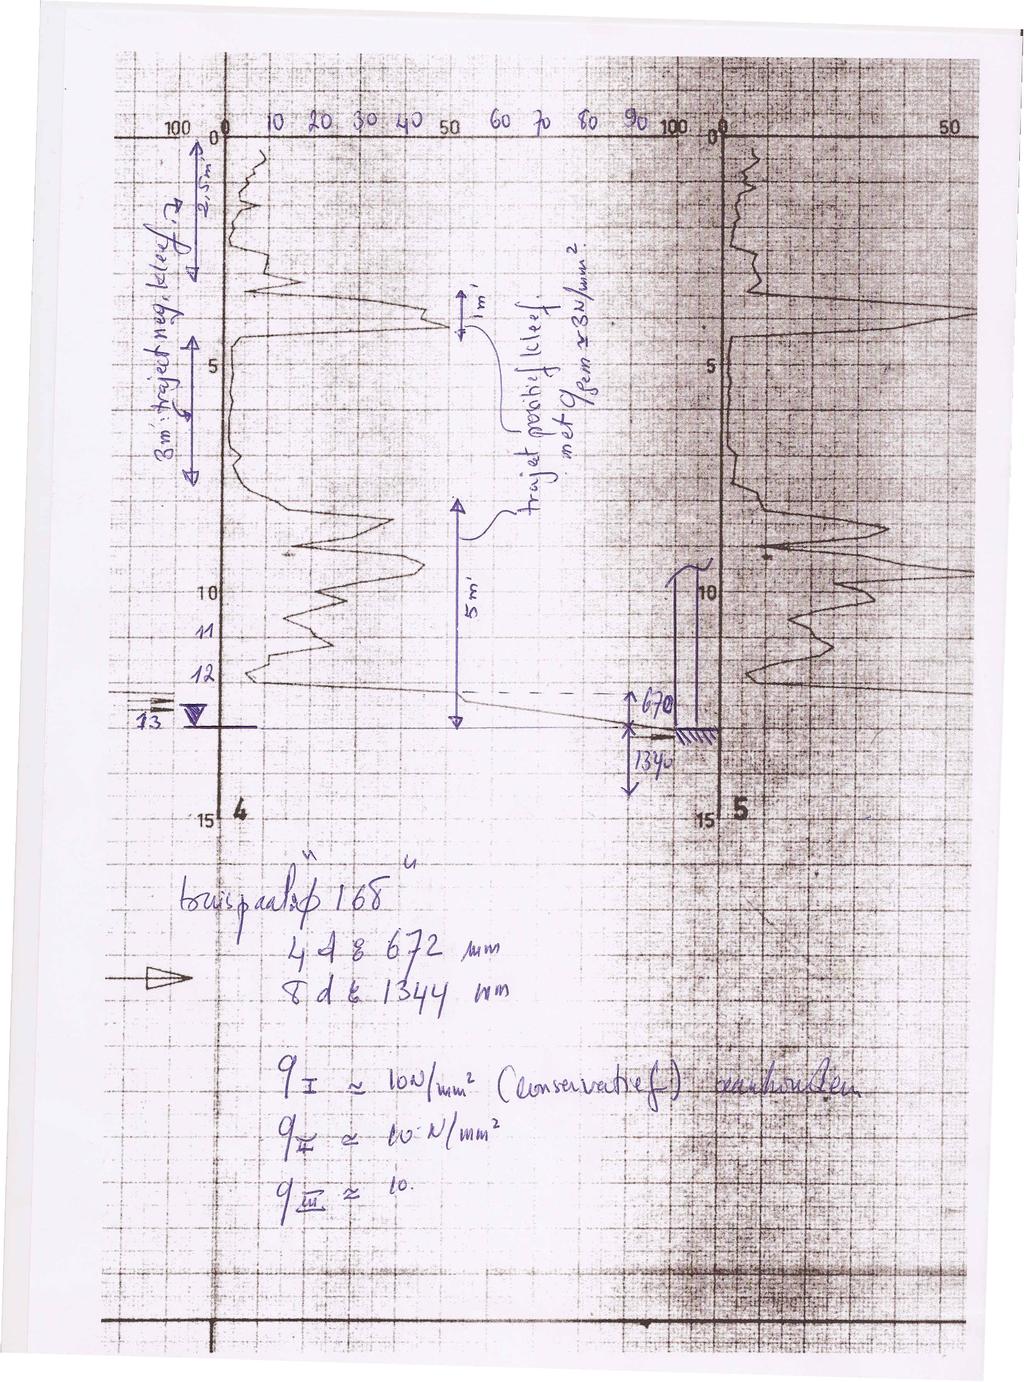 100 0 10 20 30 40 50 60 70 80 90 100 0 50
0 0
2,5m'
3m' traject neg. kleef.
1m'
traject positief kleef.
met q gem ≃ 3N/mm²
5 5
5m'
10 10
11
12
13
670
1340
15 4 15 5
buispaal "ø 168"
4 d ≅ 672 mm
8 d ≅ 1344 mm
q I ≃ 10N/mm² (conservatief) aanhouden
q II ≃ 10 N/mm²
q III ≃ 10.